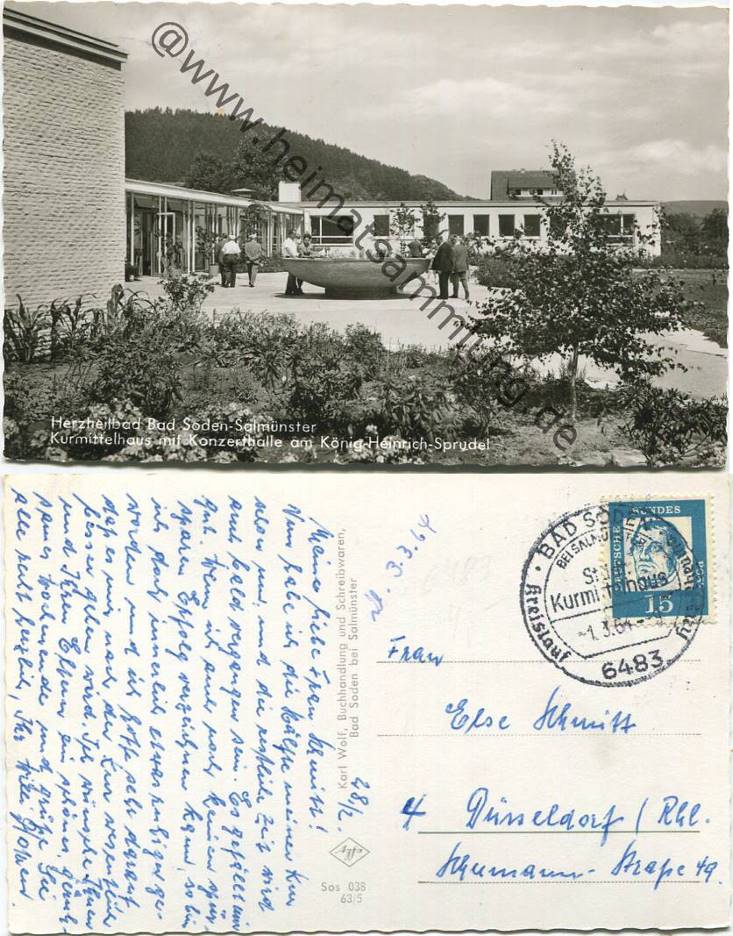 @www.heimatsammlung.de
Herzheilbad Bad Soden-Salmünster
Kurmittelhaus mit Konzerthalle am König-Heinrich-Sprudel
Meine liebe Frau Schmitt!
Nun habe ich die Hälfte meiner Kur
um, und die restliche Zeit wird
auch bald vergangen sein. Es gefällt mir
gut. Wenn ich auch noch keinen
Erfolg verzeichnen kann, so bin
ich doch innerlich etwas ruhiger ge-
worden und ich hoffe sehr darauf
daß es mir nach der Kur wesentlich
besser gehen wird. Ich wünsche Ihnen
und Ihren Eltern ein schönes,
Wochenende und grüße Sie
alle recht herzlich, Ihr
28/2.
Karl Wolf, Buchhandlung und Schreibwaren,
Bad Soden bei Salmünster
Sos 038
63/5
3.3.64
BAD SODEN
BEI SALMÜNSTER
Kurmittelhaus
-1.3.64
Kreislauf
6483
DEUTSCHE BUNDESPOST
15
Frau
Else Schmitt
4 Düsseldorf / Rhl.
Schumann-Straße 49.